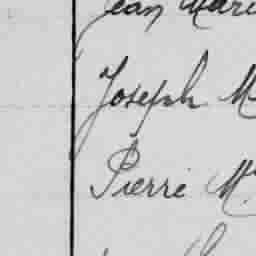 Jean Mari
Joseph M
Pierre M